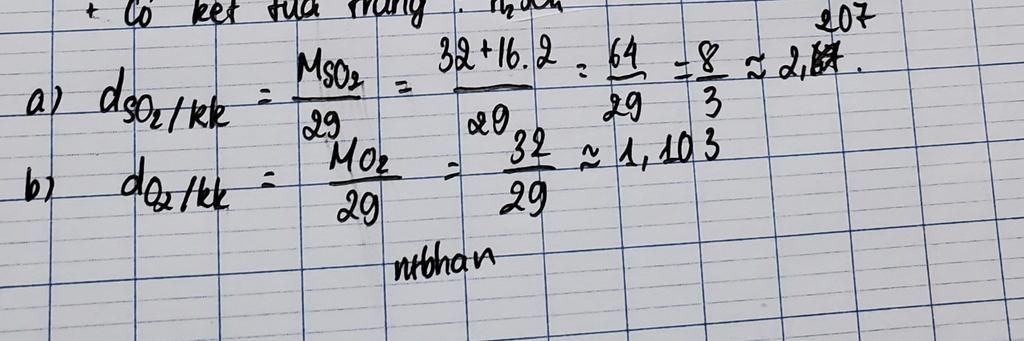 + Có kết tủa trắng :
a) dSO2/kk = MSO2/29 = 32+16.2/29 = 64/29 = 8/3 ≈ 2,207.
b) dO2/kk = MO2/29 = 32/29 ≈ 1,103
ntbhan